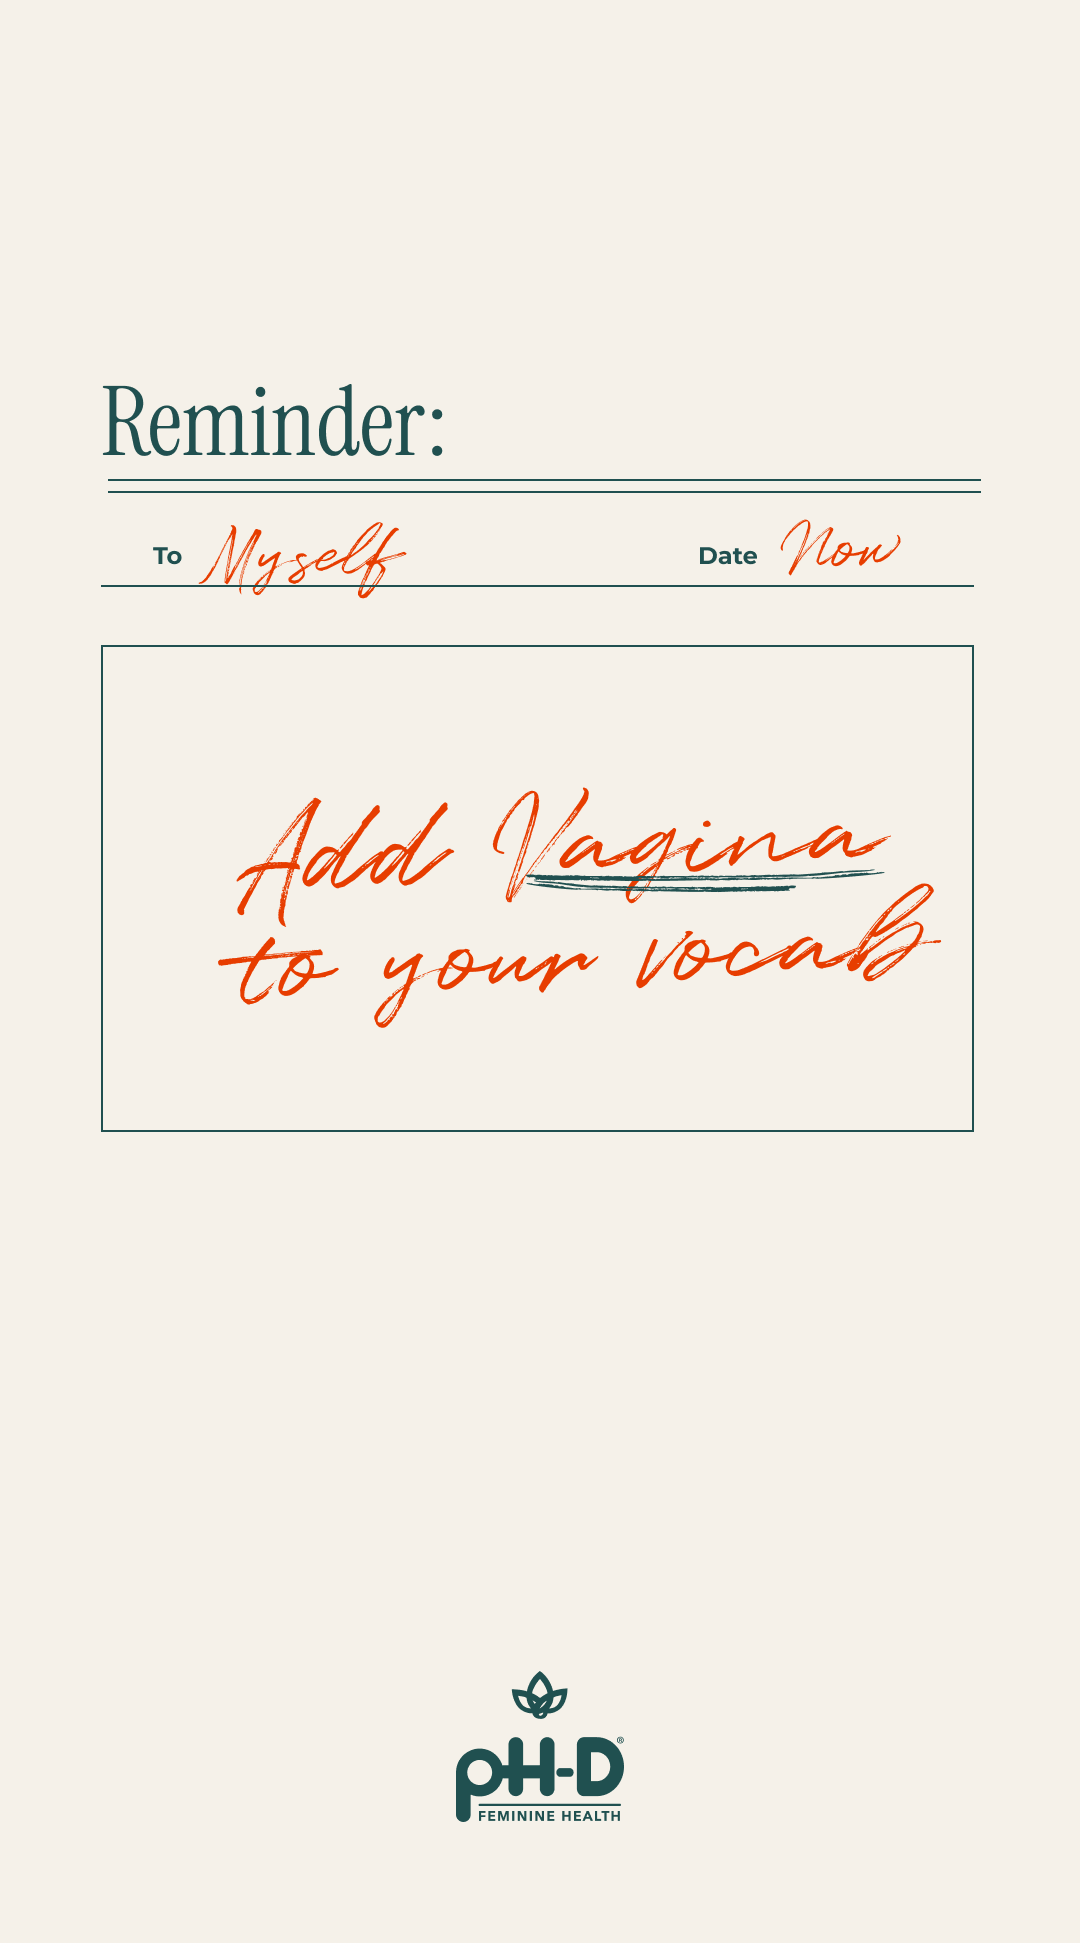 Reminder:
To Myself Date Now
Add Vagina
to your vocab
pH-D®
FEMININE HEALTH